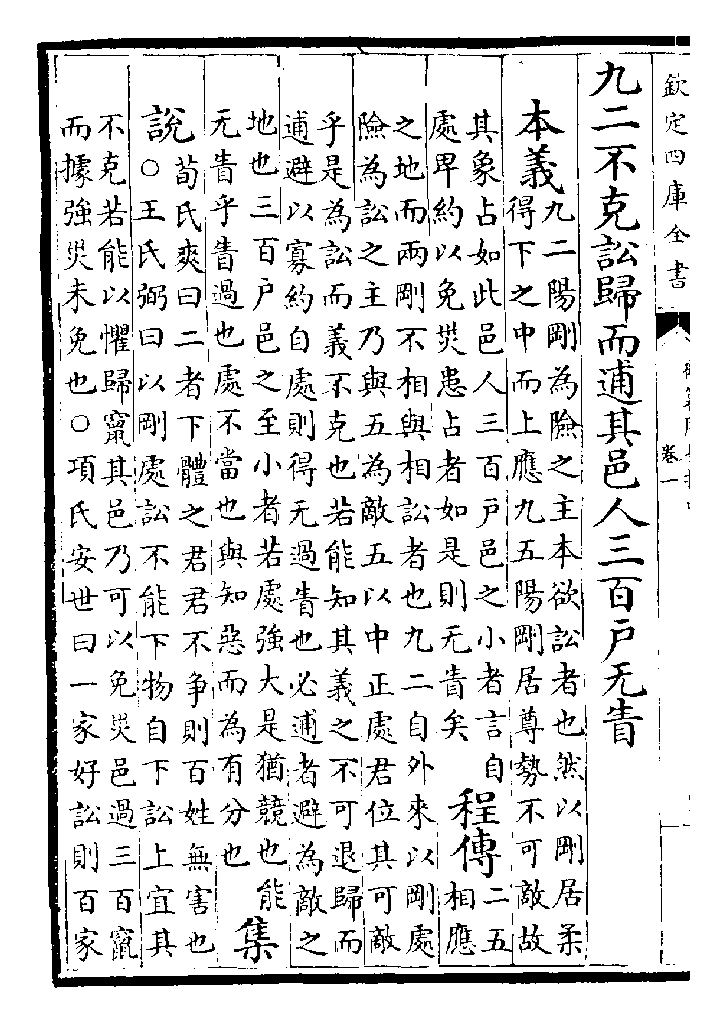 欽定四庫全書
卷一
九二不克訟歸而逋其邑人三百戶无眚
本義
九二陽剛為險之主本欲訟者也然以剛居柔
得下之中而上應九五陽剛居尊勢不可敵故
其象占如此邑人三百戶邑之小者言自
處卑約以免災患占者如是則无眚矣
程傳
二五
相應
之地而兩剛不相與相訟者也九二自外來以剛處
險為訟之主乃與五為敵五以中正處君位其可敵
乎是為訟而義不克也若能知其義之不可退歸而
逋避以寡約自處則得无過眚也必逋者避為敵之
地也三百戶邑之至小者若處強大是猶競也能
无眚乎眚過也處不當也與知惡而為有分也
集
說
荀氏爽曰二者下體之君君不争則百姓無害也
○王氏弼曰以剛處訟不能下物自下訟上宜其
不克若能以懼歸竄其邑乃可以免災邑過三百竄
而據強災未免也○項氏安世曰一家好訟則百家